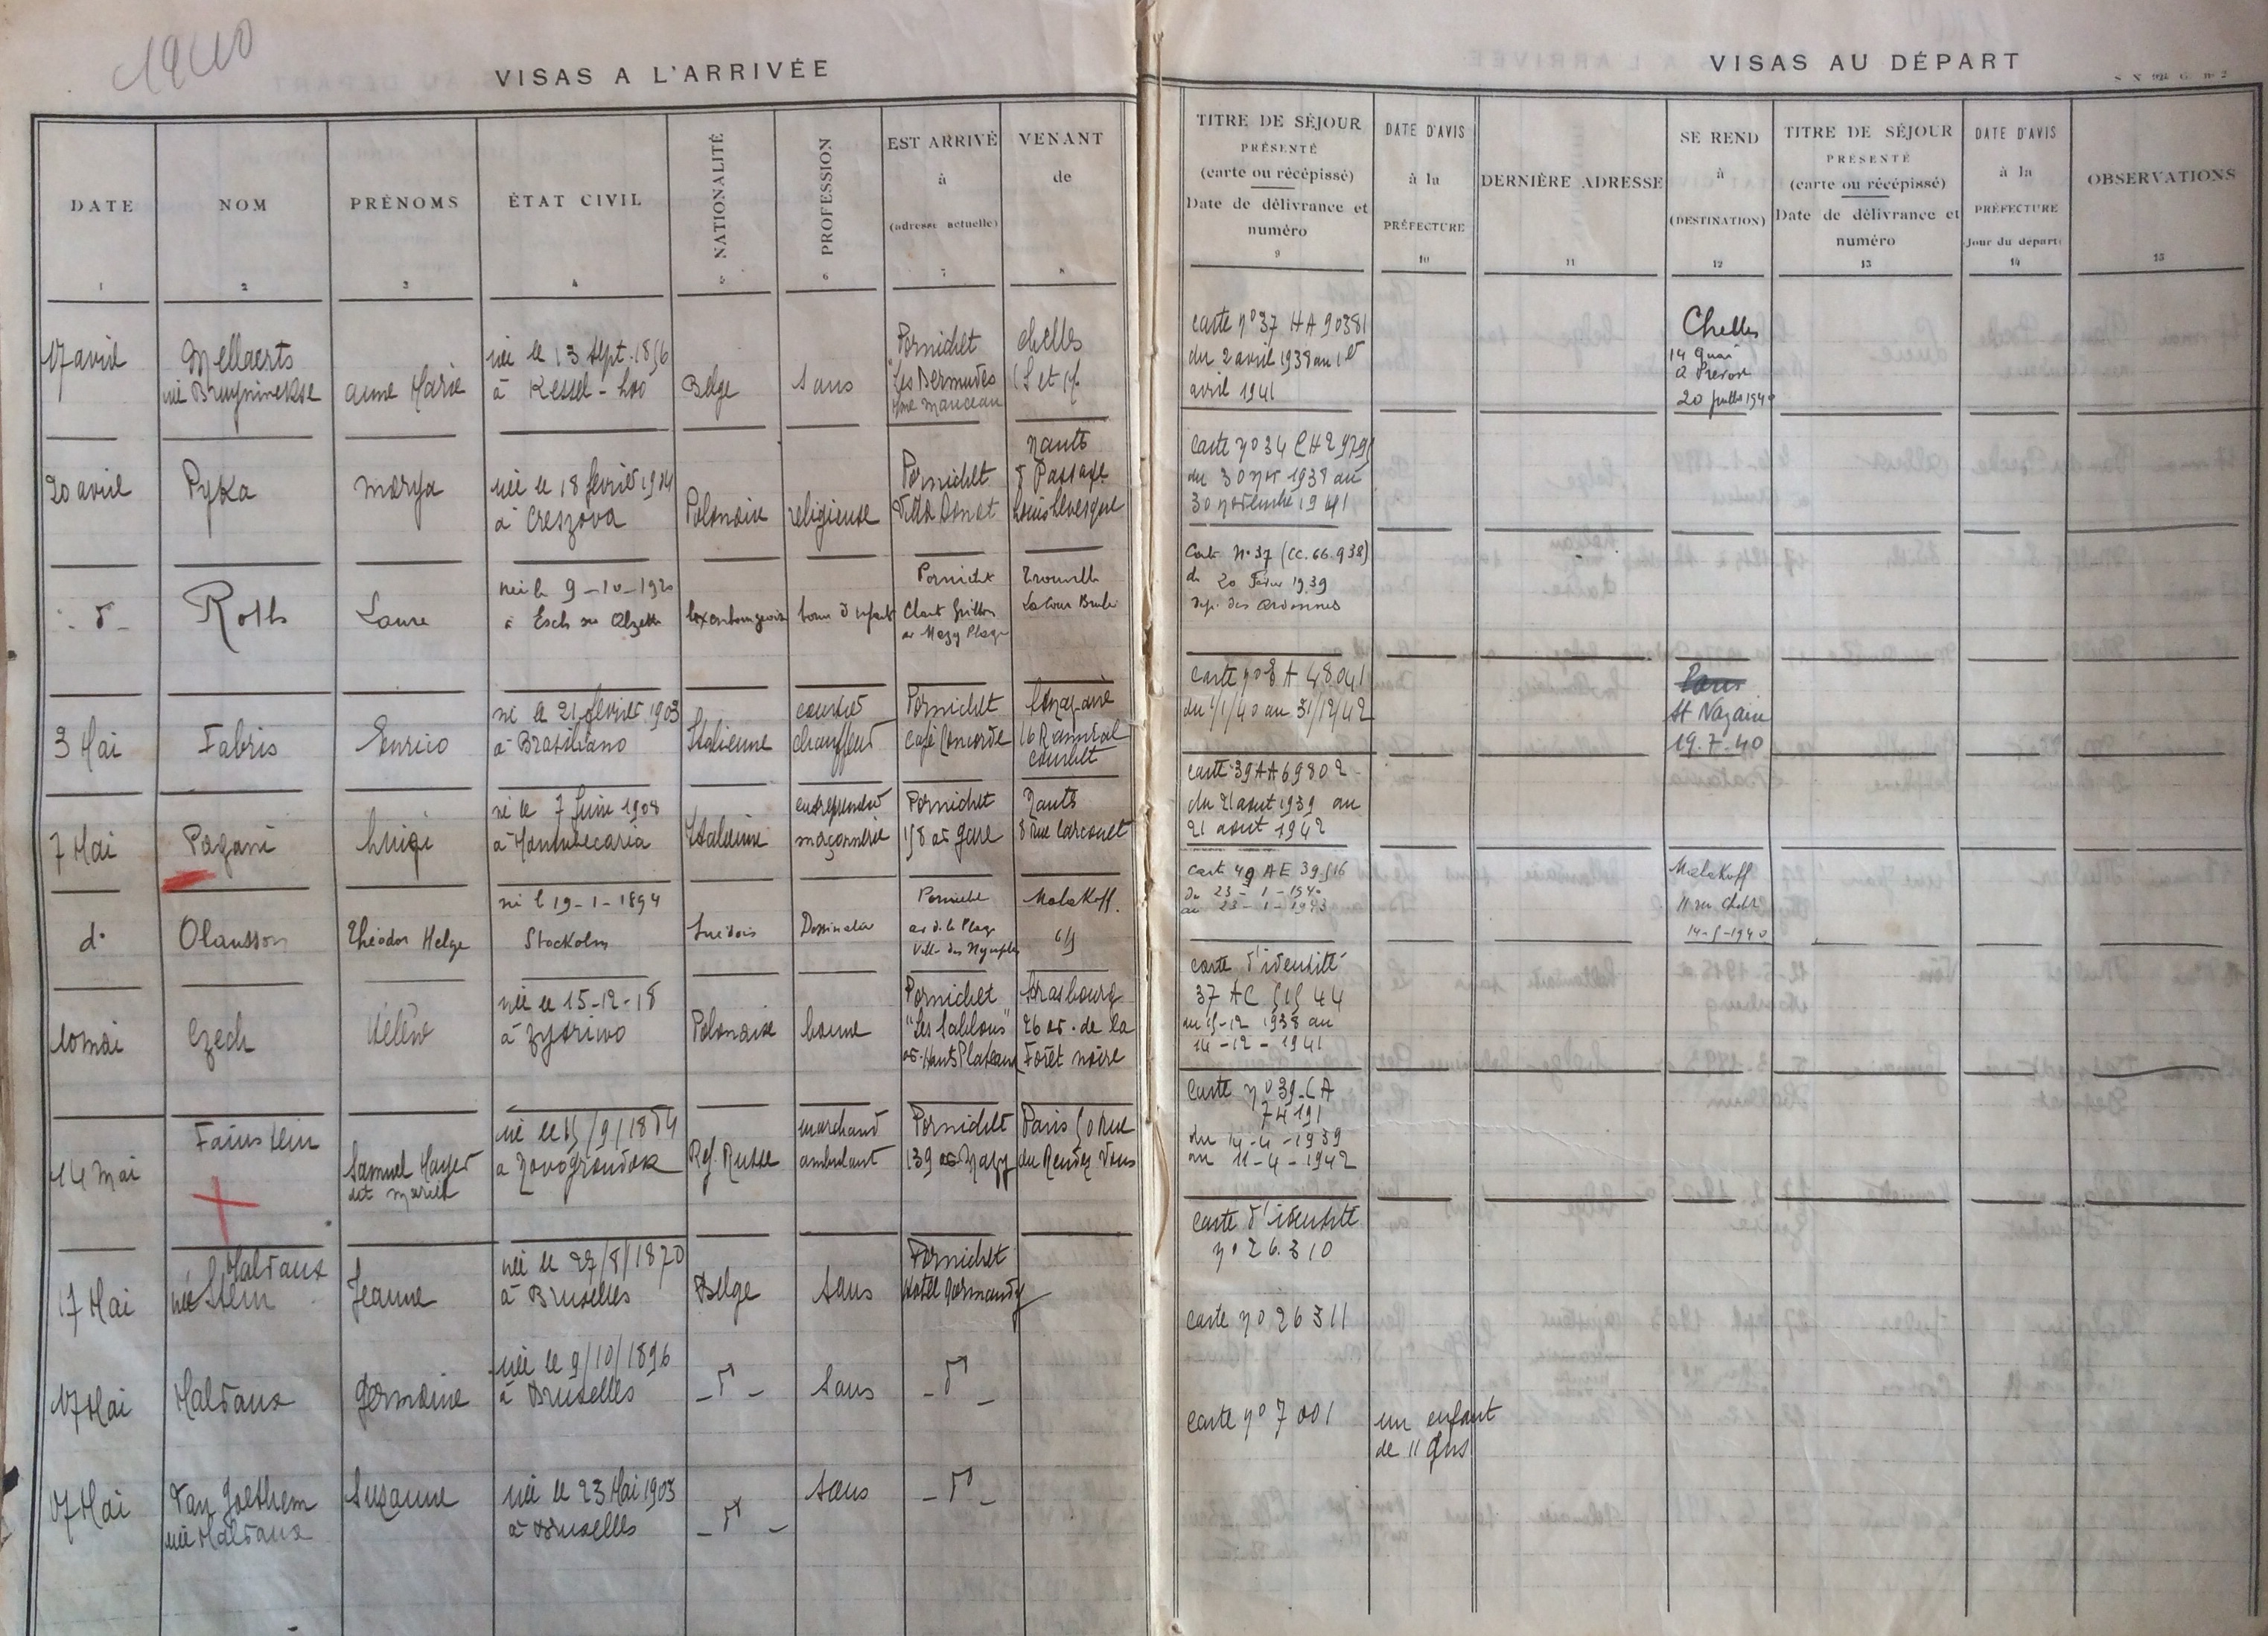 1940
VISAS A L'ARRIVÉE
VISAS AU DÉPART
DATE
1
NOM
2
PRÉNOMS
3
ÉTAT CIVIL
4
NATIONALITÉ
5
PROFESSION
6
EST ARRIVÉ
à
(adresse actuelle)
7
VENANT
de
8
TITRE DE SÉJOUR
PRÉSENTÉ
(carte ou récépissé)
Date de délivrance et
numéro
9
DATE D'AVIS
à la
PRÉFECTURE
10
DERNIÈRE ADRESSE
11
SE REND
à
(DESTINATION)
12
TITRE DE SÉJOUR
PRÉSENTÉ
(carte ou récépissé)
Date de délivrance et
numéro
13
DATE D'AVIS
à la
PRÉFECTURE
(Jour du départ)
14
OBSERVATIONS
15
17 avril
Mellaerts
née Bruyninckse
Anne Marie
née le 13 sept. 1856
à Kessel-Loo
Belge
Sans
Pornichet
"Les Bermudes
Mme Manceau
Chelles
(S et M
carte n° 37 HA 90381
du 2 avril 1938 au 1er
avril 1941
Chelles
14 Quai
20 juillet 1940
20 avril
Pyka
Marya
née le 18 février 1904
à Creszova
Polonaise
religieuse
Pornichet
Villa Donat
Nants
8 Passage
Louis Levesque
Carte n° 34 CH 29795
du 30 nov 1938 au
30 novembre 1941
- d° -
Roth
Laure
née le 9-10-1920
à Esch sur Alzette
luxembourgeoise
bonne d'enfants
Pornichet
Chalet Grillon
av Mazy Plage
Carte N° 37 (CC. 66.938)
du 20 Février 1939
dép. des Ardennes
3 Mai
Fabris
Enrico
né le 21 février 1903
à Brasiliano
Italienne
chauffeur
Pornichet
Café Concorde
16 R amiral
Courbet
carte n° 8 A 48041
du 1/1/40 au 31/12/42
Paris
St Nazaire
19.7.40
7 Mai
Pagani
Luigi
né le 7 Juin 1908
à Montubecaria
Italienne
entrepreneur
maçonnerie
Pornichet
158 av gare
Nants
8 rue Carcouet
carte 39 AA 69802
du 21 aout 1939 au
21 aout 1942
d°
Olausson
Théodor Helge
né le 19-1-1894
Stockolm
Suédois
Dessinateur
Pornichet
av de la Plage
Villa des Nymphes
Malakoff
Cart 49 AE 39516
du 23-1-1940
au 23-1-1943
Malakoff
14-5-1940
10 mai
Czech
Hélène
née le 15-12-18
Polonaise
bonne
Pornichet
"Les Sablons"
av. Hauts Plateaux
Strasbourg
26 av. de la
Forêt noire
carte d'identité
37 AC 51544
du 15-12 1938 au
14-12-1941
14 mai
Fainstein
Samuel Mayer
dit
né le 15/9/1884
à Novogroudok
Ref. Russe
marchand
ambulant
Pornichet
139 av Mazy
Paris 50 Rue
du Rendez Vous
Carte n° 39-CA
74191
du 14-4-1939
au 11-4-1942
17 Mai
Maldaux
née Stein
Jeanne
née le 27/8/1870
à Bruxelles
Belge
Sans
Pornichet
Hotel Normandy
Carte d'identité
n° 26.310
17 Mai
Maldaux
Germaine
née le 9/10/1896
à Bruxelles
- d° -
Sans
- d° -
Carte n° 26311
17 Mai
Van Goethem
née Maldaux
Suzanne
née le 23 Mai 1903
à Bruxelles
- d° -
Sans
- d° -
Carte n° 7001
un enfant
de 11 ans